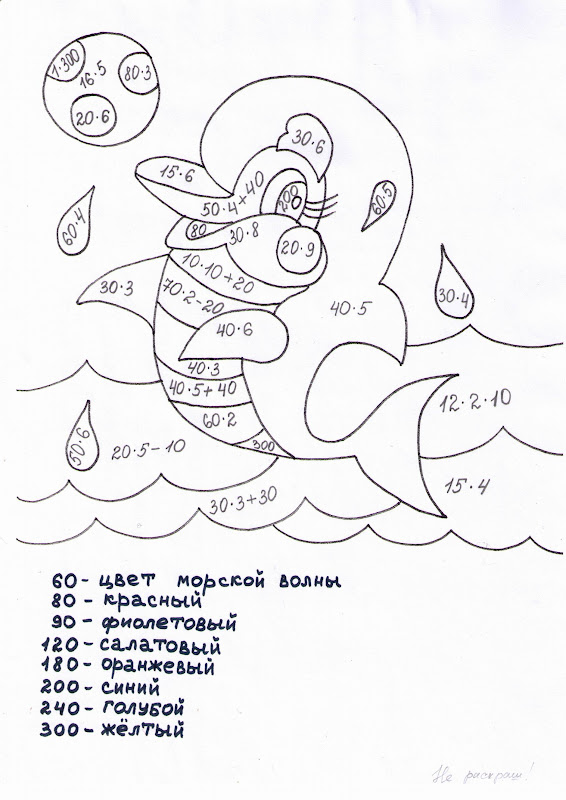 1·300
16·5
80·3
20·6
30·6
15·6
50·4+40
200
60·5
60·4
80
30·8
20·9
10·10+20
30·3
70·2-20
30·4
40·5
40·6
40·3
40·5+40
12·2·10
60·2
300
50·6
20·5-10
15·4
30·3+30
60- цвет морской волны
80- красный
90- фиолетовый
120- салатовый
180- оранжевый
200- синий
240- голубой
300- жёлтый
Не раскраш!